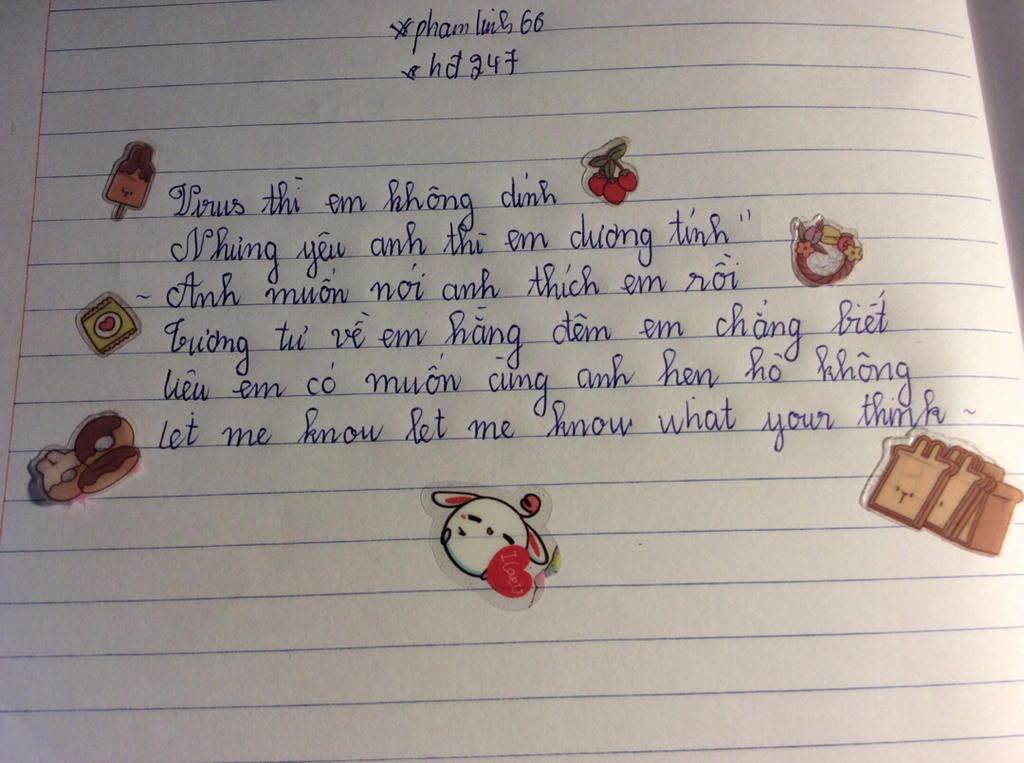 *phamlinh66
*hđ247
Virus thì em không dính
Nhưng yêu anh thì em dương tính"
~ Anh muốn nói anh thích em rồi
Tương tư về em hằng đêm em chẳng biết
liệu em có muốn cùng anh hẹn hò không
let me know let me know what your think ~